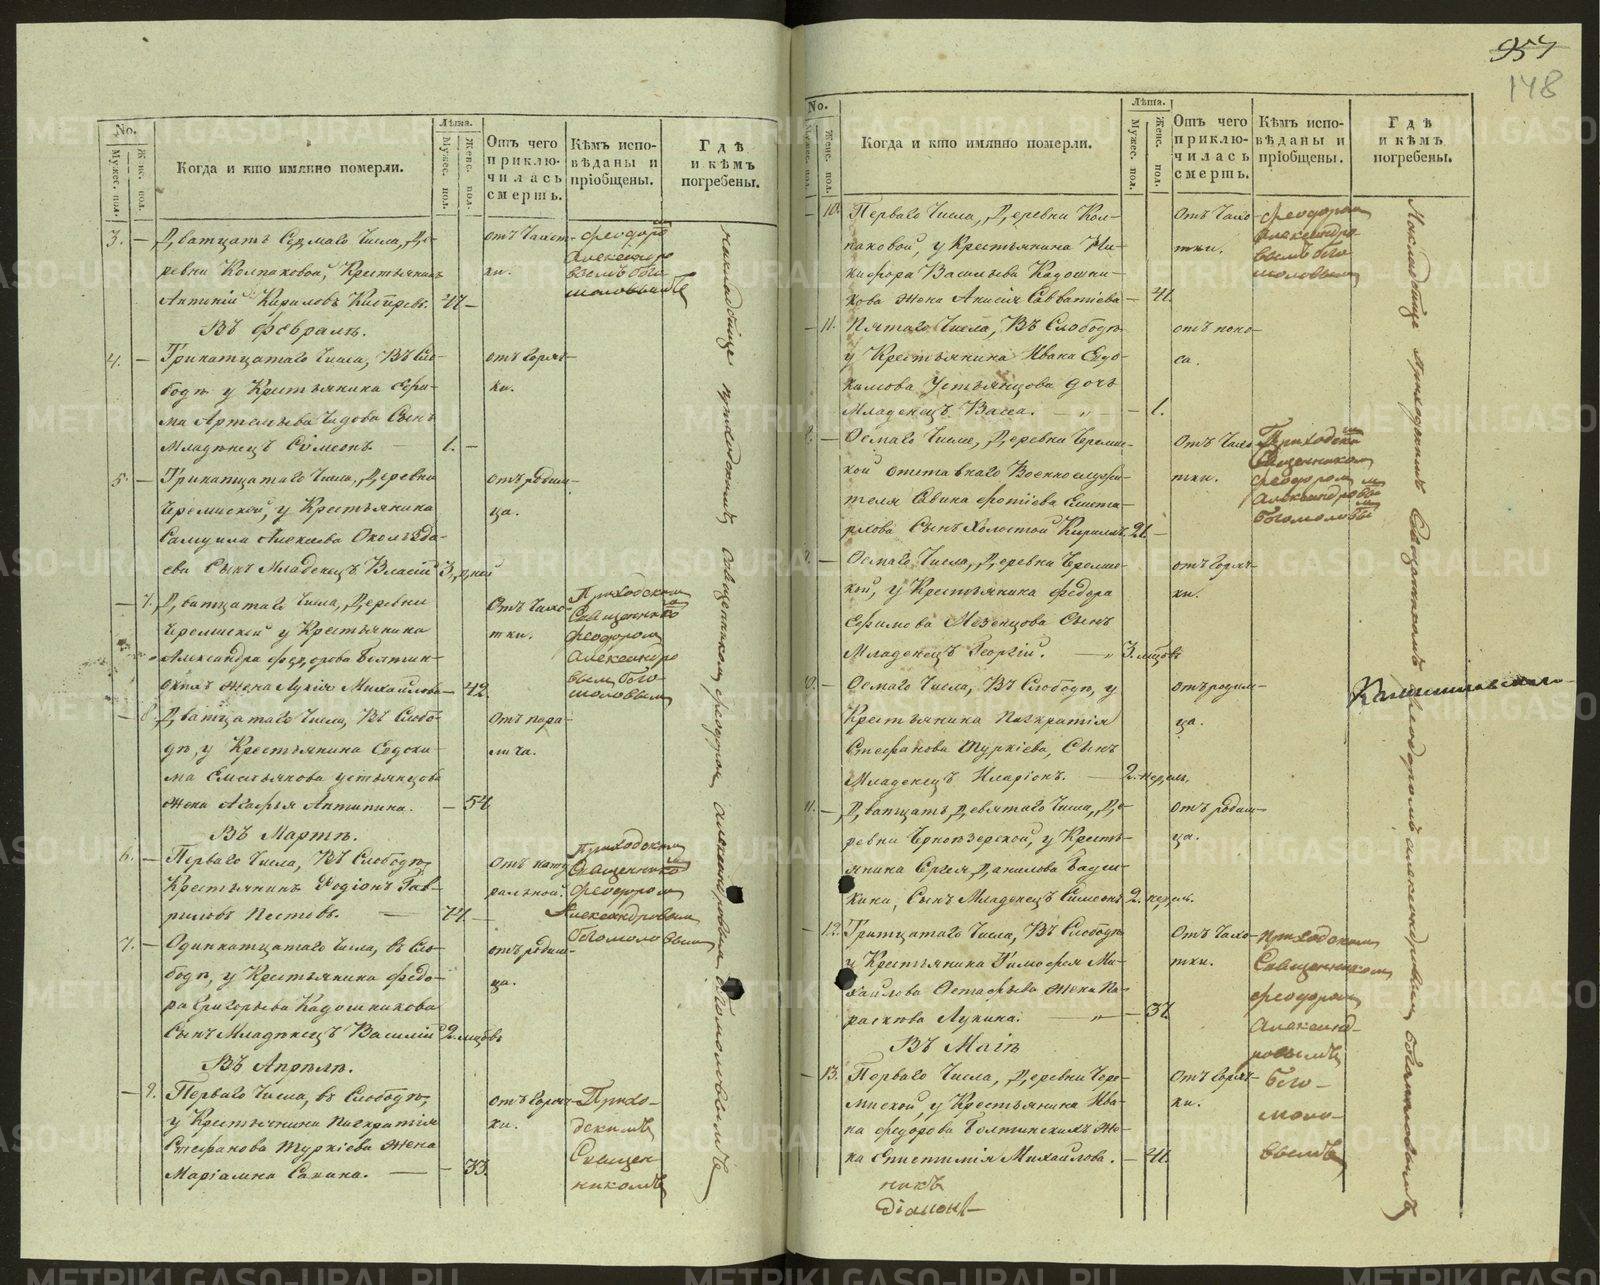 No.
Мужес. пол.
Женс. пол.
Когда и кто имянно померли.
Лѣта.
Мужес. пол.
Женс. пол.
Отъ чего
приклю-
чилась
смерть.
Кѣмъ испо-
вѣданы и
пріобщены.
Гдѣ
и кѣмъ
погребены.
3. — Дватцать Седмаго Числа, Де-
ревни Колпаковой, Крестьянинъ
Кириловъ 47 —
Въ Февралѣ.
4. — Числа, Въ Сло-
бодѣ у Крестьянина Ефи-
ма Артемьева Сынъ
Младѣнецъ Сѵмеонъ — 1. —
отъ горяч-
ки.
5. — Числа, Деревни
Черемиской, у Крестьянина
Самуила Алексѣева
ева Сынъ Младенецъ Власій 3. дней
отъ родим-
ца.
— 7. Дватцатаго Числа, Деревни
Черемиской у Крестьянина
Александра Федорова
жена Лукія Михаилова — 42.
Отъ чахо-
тки.
Приходскимъ
Священнико
Феодоромъ
Александро
вымъ Бого-
моловымъ
— 8. Дватцатаго Числа, Въ Слобо-
дѣ, у Крестьянина Евдоки-
ма Емельянова Устьянцова
жена Агафья Антипина. — 54
Отъ пара-
лича.
Въ Мартѣ.
6. — Перваго Числа, Въ Слободѣ
Крестьянинъ Родіонъ Гав-
риловъ Пестовъ. — 74 —
Отъ нату
ральной.
Приходскимъ
Священнико
Феодоромъ
Александровымъ
Богомоловымъ
7. — Одиннатцатаго Числа, въ Сло-
бодѣ, у Крестьянина Федо-
ра Григорьева Кадошникова
Сынъ Младѣнецъ Василій 2. мцовъ
отъ родим-
ца.
Въ Апрѣлѣ.
— 9. Перваго Числа, въ Слободѣ,
у Крестьянина Панкратія
Стефанова Туркіева жена
Маріамна Савина. — 33.
отъ горяч-
ки.
Прихо-
дскимъ
Священ
никомъ
На кладбище приходскимъ Священникомъ Феодоромъ Александровымъ Богомоловымъ
957
148
No.
Мужес. пол.
Женс. пол.
Когда и кто имянно померли.
Лѣта.
Мужес. пол.
Женс. пол.
Отъ чего
приклю-
чилась
смерть.
Кѣмъ испо-
вѣданы и
пріобщены.
Гдѣ
и кѣмъ
погребены.
— 10. Перваго Числа, Деревни Кол-
паковой, у Крестьянина Ни-
кифора Васильева Кадошни-
кова жена Анисія Савватіева — 41.
Отъ чахо-
тки.
Феодоромъ
Александро
вымъ Бого
моловымъ
— 11. Пятаго Числа, Въ Слободѣ
у Крестьянина Ивана Евдо-
кимова Устьянцова дочь
Младенецъ Васса. — 1.
отъ поно-
са.
Осмаго Числа, Деревни Череми-
ской отставнаго Военнослужи-
теля Савина Фотіева
Сынъ Холостой Кириллъ 21. —
Отъ чахо
тки.
Приходски
Священникомъ
Феодоромъ
Александровы
Богомоловы
Осмаго Числа, Деревни Череми-
кой, у Крестьянина Федора
Ефимова Мезенцова Сынъ
Младенецъ Георгій. — 3. мцовъ
отъ горяч-
ки.
Осмаго Числа, Въ Слободѣ, у
Крестьянина Панкратія
Стефанова Туркіева, Сынъ
Младенецъ Иларіонъ. — 2. недель.
отъ родим-
ца.
— Дватцать Девятаго Числа, Де-
ревни Черноозерской, у Кресть-
янина Сергея Данилова
кина, Сынъ Младенецъ Симеонъ 2. недель.
отъ родим-
ца.
— 12. Тритцатаго Числа, Въ Слободѣ
у Крестьянина Тимофея Ми-
хайлова Остафьева жена Па-
раскева Лукина. — 37.
Отъ чахо-
тки.
Приходскимъ
Священникомъ
Феодоромъ
Александ-
ровымъ
Бого-
моло-
вымъ
Въ Маіѣ
— 13. Перваго Числа, Деревни Чере-
миской, у Крестьянина Ива-
на Федорова же-
на Епистимія Михаилова. — 41.
Отъ горяч-
ки.
На кладбище приходскимъ Священникомъ Феодоромъ Александровымъ Богомоловымъ
никъ